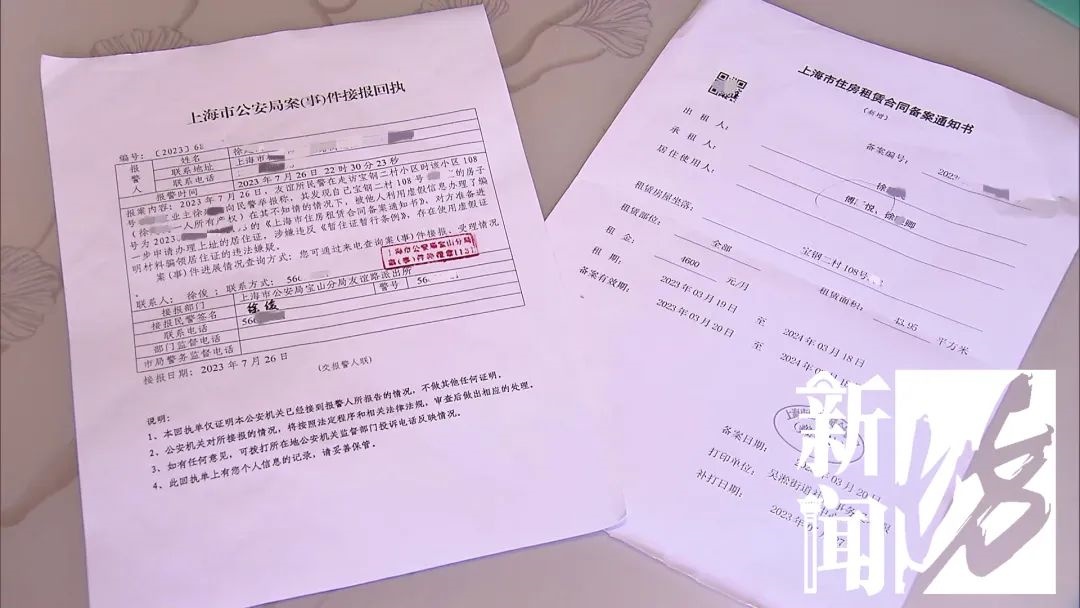 上海市公安局案(事)件接报回执
编号：〔2023〕6
报警人
姓名 徐
联系地址 上海市
联系电话
报警时间 2023年7月26日22时30分23秒
报案内容：2023年7月26日，友谊所民警在走访宝钢二村小区时该小区108
号 业主徐 向民警举报称，其发现自己宝钢二村108号 的房子
(徐 一人所有产权）在其不知情的情况下，被他人利用虚假信息办理了编
号为2023 的《上海市住房租赁合同备案通知书》，对方准备进
一步申请办理上址的居住证，涉嫌违反《暂住证暂行条例》，存在使用虚假证
明材料骗领居住证的违法嫌疑。
案（事）件进展情况查询方式：您可通过来电查询案（事）件接报、受理情况
上海市公安局宝山分局
联系人：徐俊；联系方式：566
接报部门 上海市公安局宝山分局友谊路派出所
接报民警签名 徐俊 警号 56
联系电话 566
部门监督电话
市局警务监督电话
接报日期：2023年7月26日
(交报警人联)
说明：
1、本回执单仅证明本公安机关已经接到报警人所报告的情况，不做其他任何证明。
2、公安机关对所接报的情况，将按照法定程序和相关法律法规，审查后做出相应的处理。
3、如有任何意见，可拨打所在地公安机关监督部门投诉电话反映情况。
4、此回执单上有您个人信息的记录，请妥善保管。
上海市住房租赁合同备案通知书
(新增)
备案编号：
2023
出租人： 徐
承租人： 傅 悦、徐 卿
居住使用人：
租赁房屋坐落： 宝钢二村108号
租赁部位： 全部 租赁面积： 43.95 平方米
租金： 4600 元/月
租期： 2023年03月19日 至 2024年03月18日
备案有效期： 2023年03月20日 至 2024年03月
备案日期： 03月20日
打印单位： 吴淞街道社 事务
补打日期： 2023年0
新闻坊